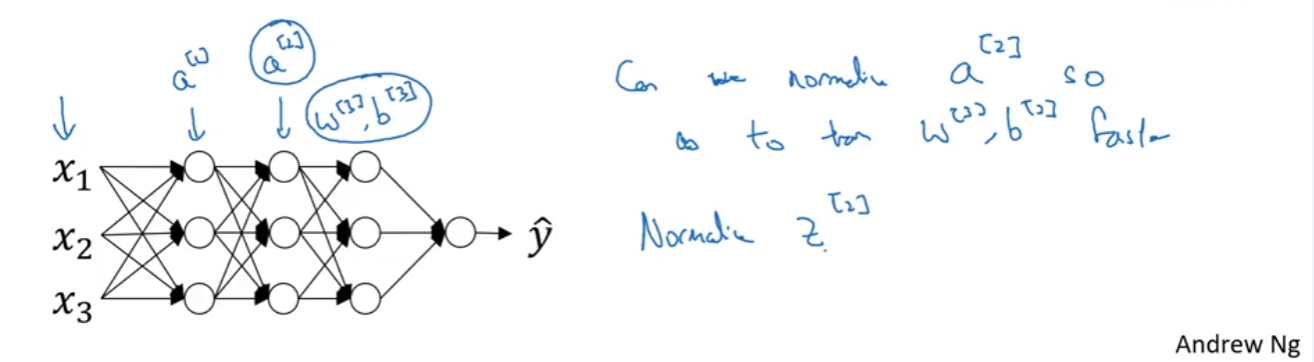 a^[1] a^[2]
w^[3], b^[3]
Can we normalize a^[2] so
as to train w^[3], b^[3] faster
Normalize z^[2]
x₁
x₂
x₃
ŷ
Andrew Ng